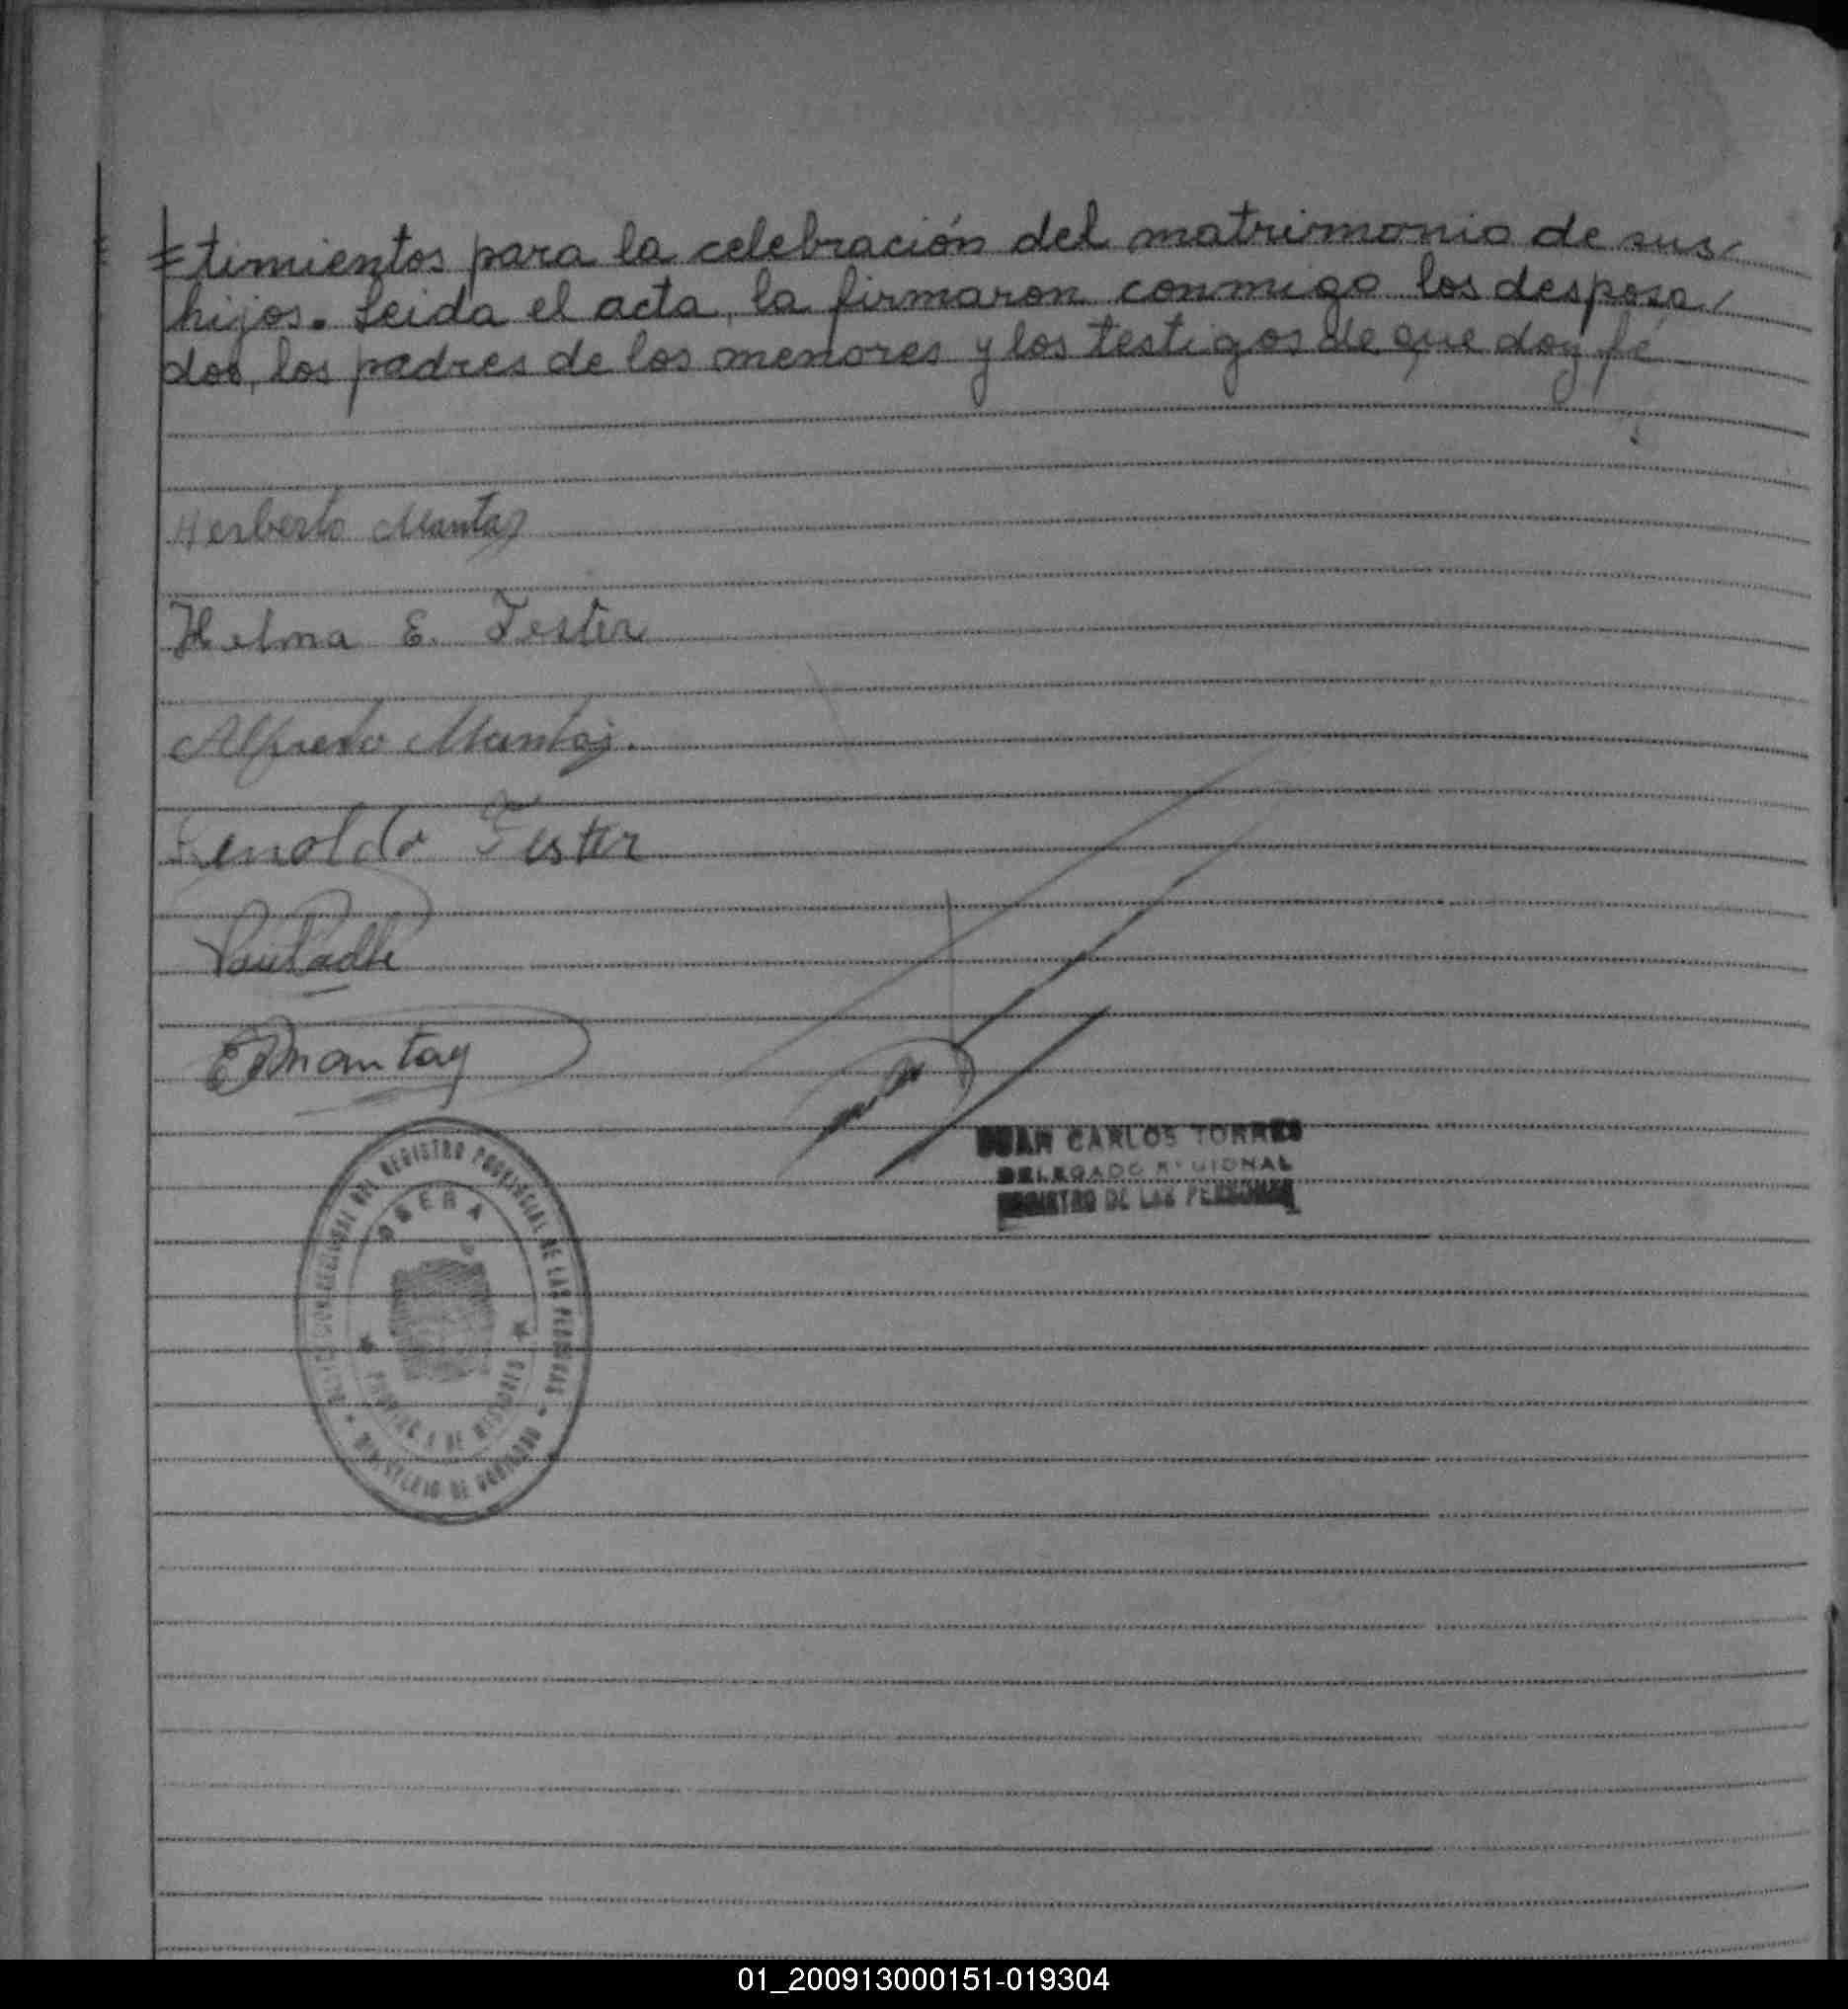 =timientos para la celebración del matrimonio de sus
hijos. Leida el acta, la firmaron conmigo los desposa
dos, los padres de los menores y los testigos de que doy fé
Herberto Mantay
Helma E. Fester
Alfredo Mantay.
Fester
E Mantay
JUAN CARLOS TORRES
DELEGADO REGIONAL
REGISTRO DE LAS PERSONAS
DEL REGISTRO PROVINCIAL DE LAS PERSONAS
OBERA
PROVINCIA DE MISIONES
MINISTERIO DE GOBIERNO
01_200913000151-019304